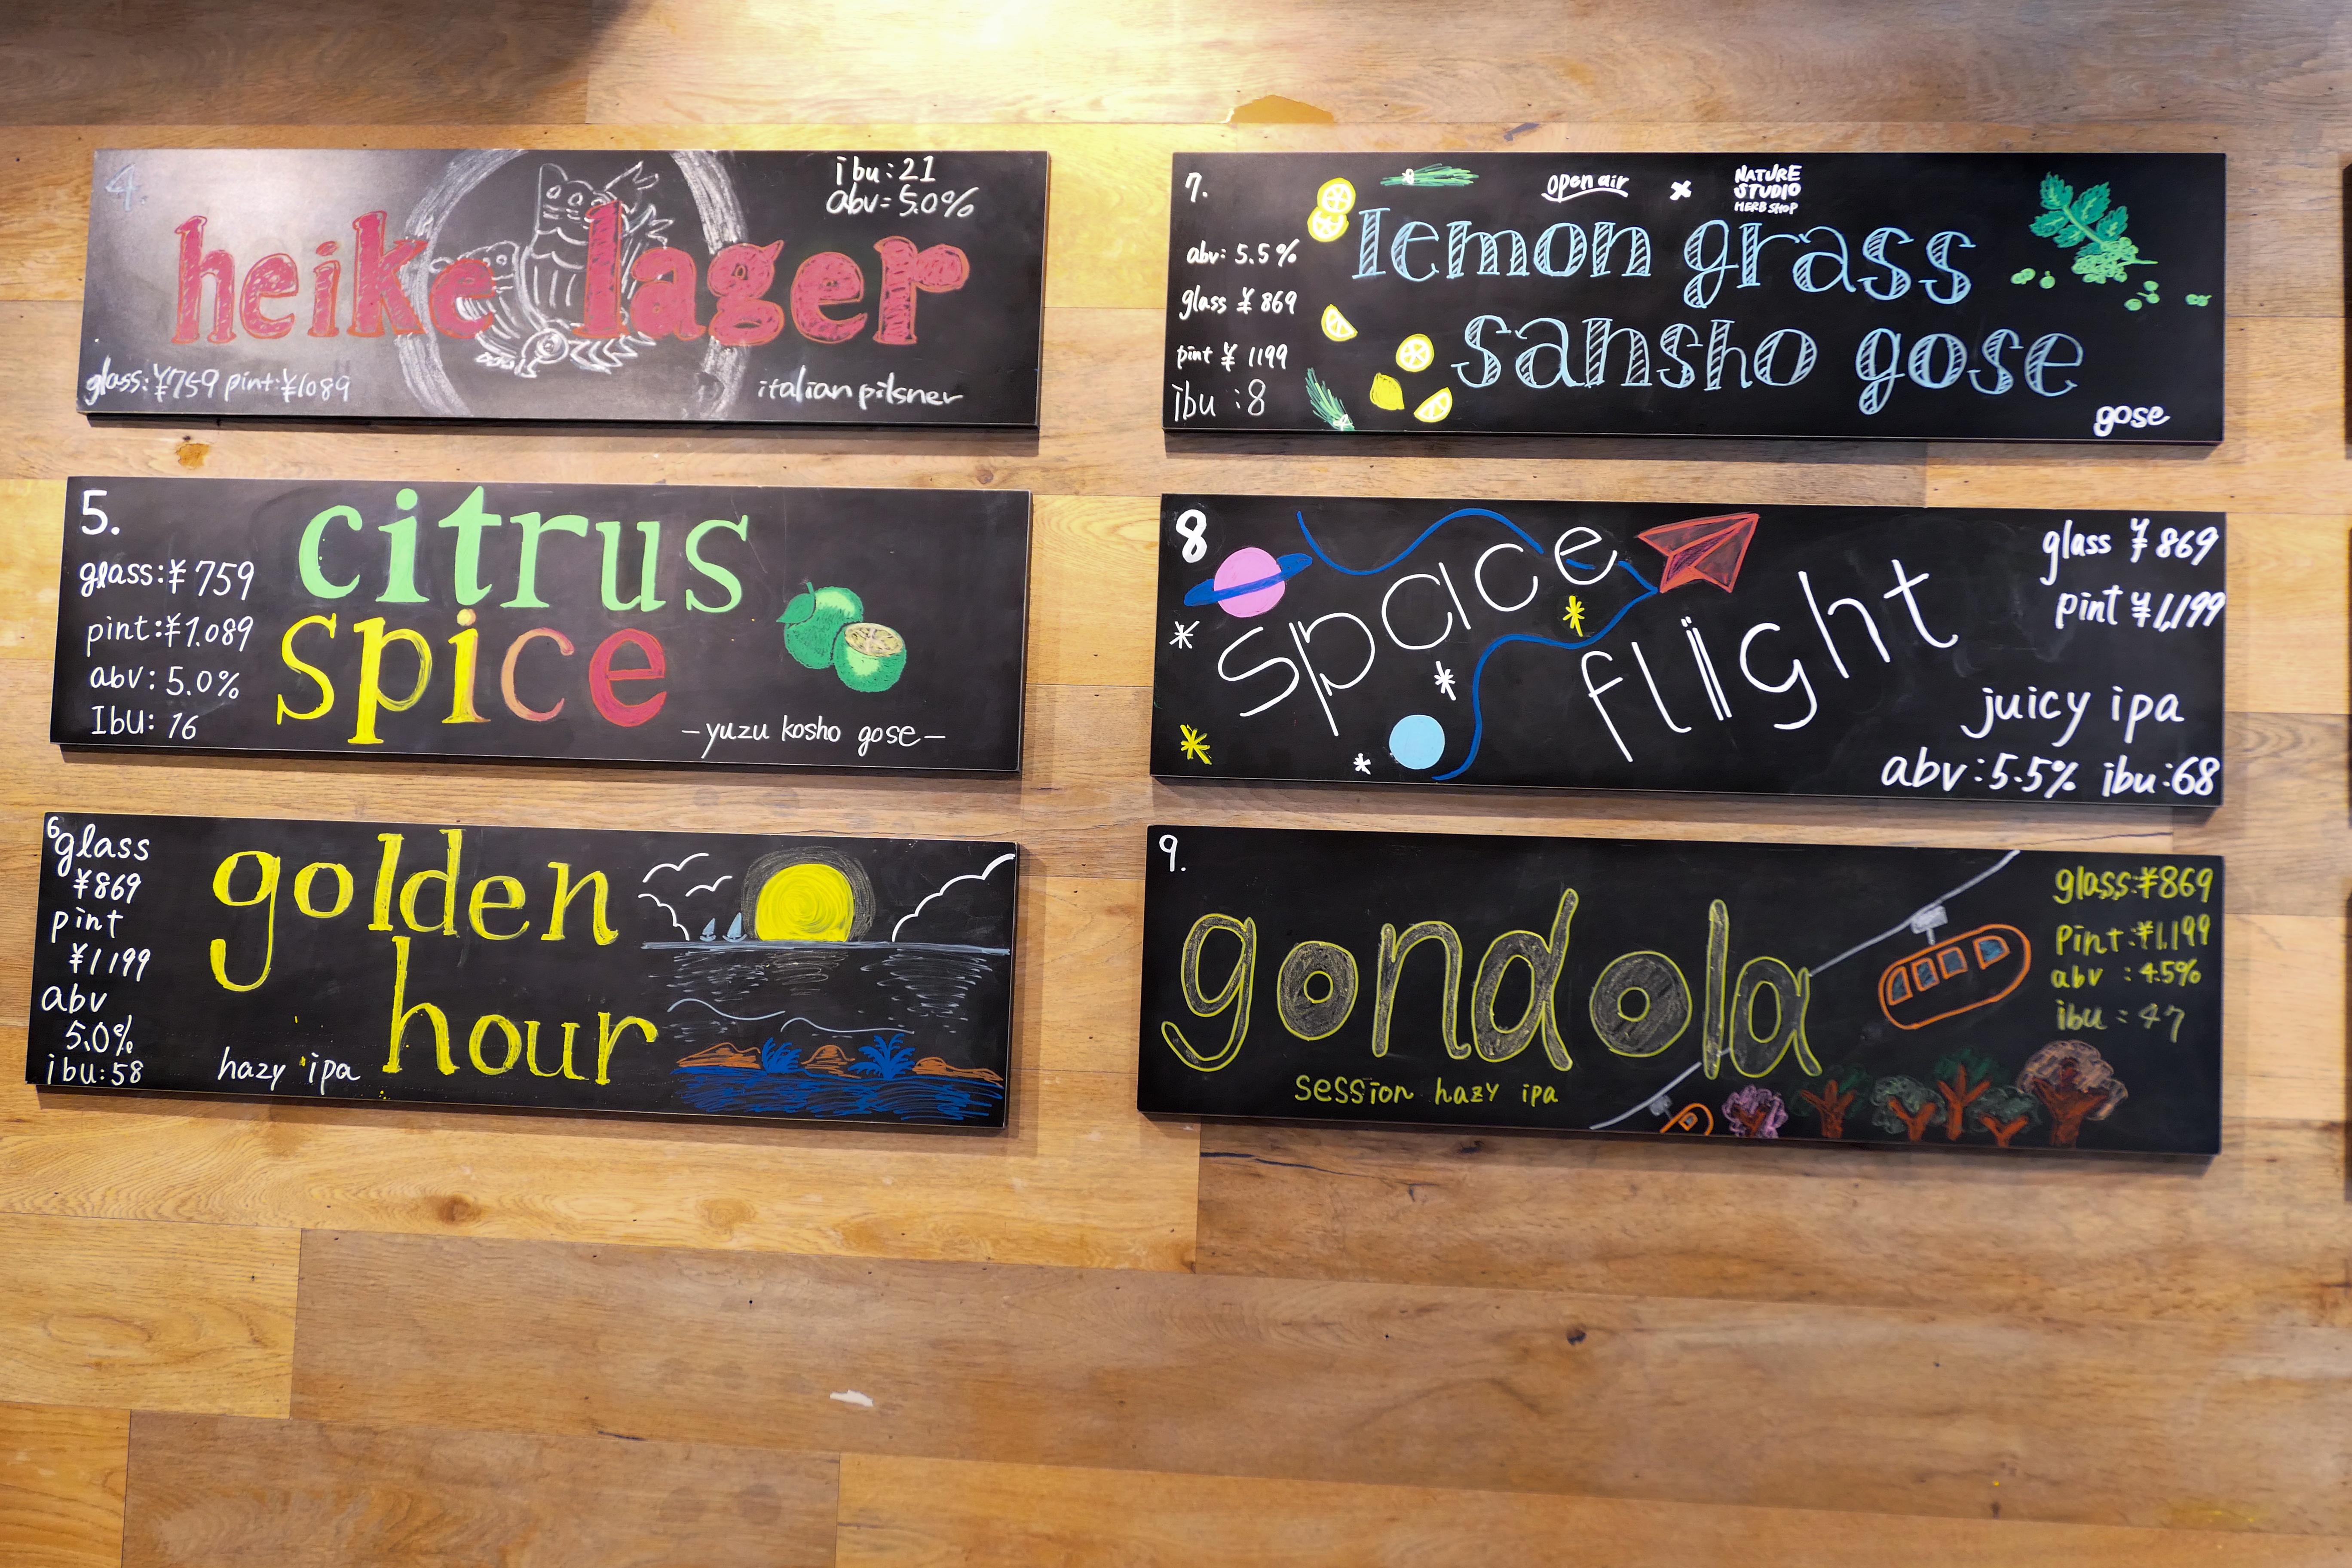 4.
ibu:21
abv:5.0%
heike lager
glass:¥759 pint:¥1089
italian pilsner
5.
glass:¥759
pint:¥1.089
abv:5.0%
Ibu: 16
citrus
spice
-yuzu kosho gose-
6
glass
¥869
pint
¥1199
abv
5.0%
ibu:58
golden
hour
hazy ipa
7.
abv: 5.5%
glass ¥869
pint ¥1199
ibu:8
open air × NATURE
STUDIO
HERB SHOP
lemon grass
sansho gose
gose
8
space
flight
glass ¥869
pint ¥1,199
juicy ipa
abv:5.5% ibu:68
9.
gondola
session hazy ipa
glass:¥869
pint:¥1,199
abv : 4.5%
ibu : 47